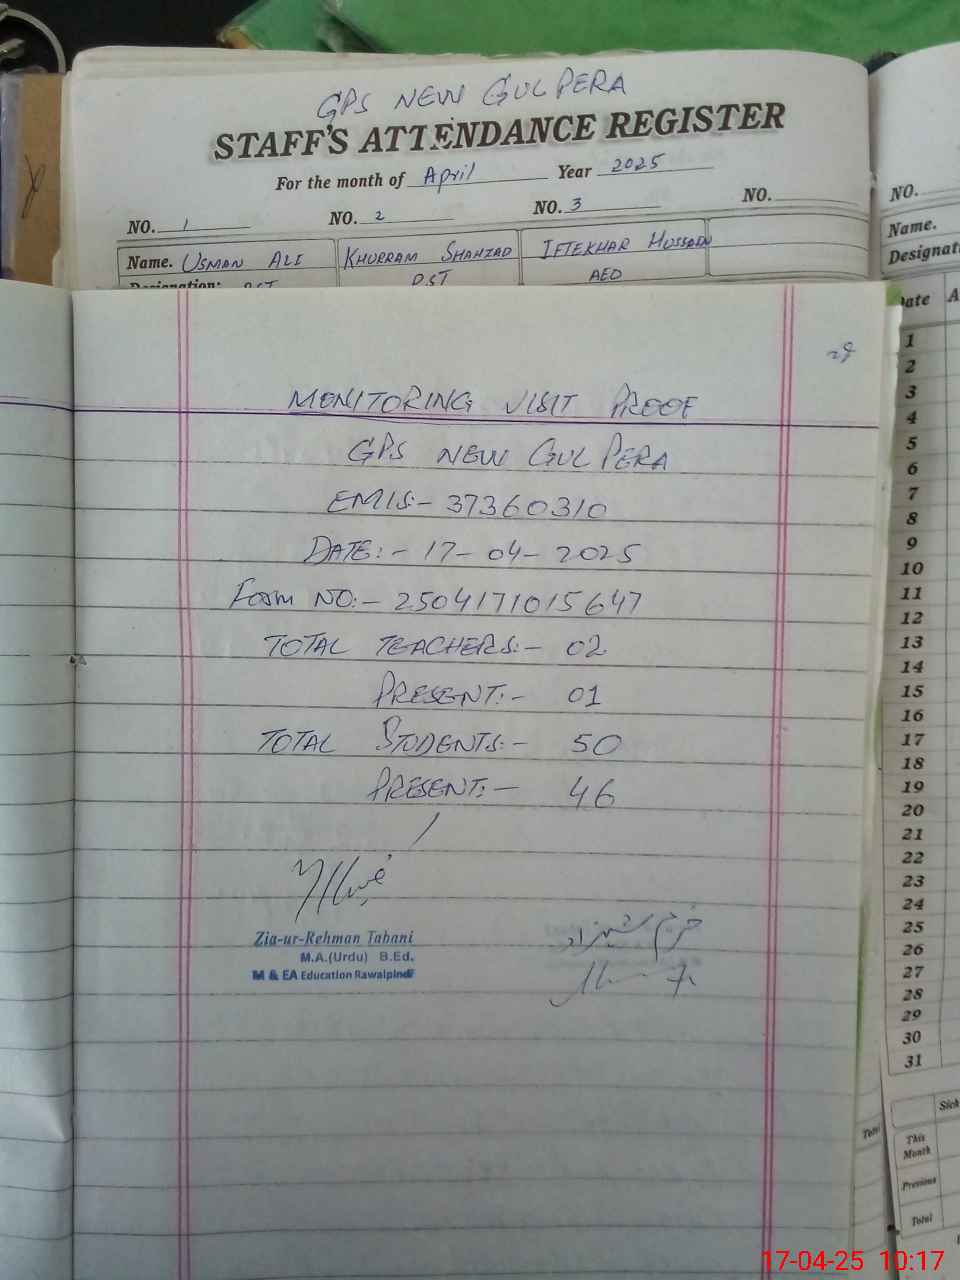 GPS NEW GUL PERA
STAFF'S ATTENDANCE REGISTER
For the month of April Year 2025
NO. 1 NO. 2 NO. 3 NO.
Name. USMAN ALI KHURRAM SHAHZAD IFTEKHAR HUSSAIN
Designation: PST PST AEO
NO.
Name.
Date
1
2
3
4
5
6
7
8
9
10
11
12
13
14
15
16
17
18
19
20
21
22
23
24
25
26
27
28
29
30
31
Sick
This Month
Previous
Total
Total
MONITORING VISIT PROOF
GPS NEW GUL PERA
EMIS:- 37360310
DATE:- 17-04-2025
Form NO:- 2504171015647
TOTAL TEACHERS:- 02
PRESENT:- 01
TOTAL STUDENTS:- 50
PRESENT:- 46
Zia-ur-Rehman Tabani
M.A.(Urdu) B.Ed.
M & EA Education Rawalpindi
خرم شہزاد
17-04-25 10:17